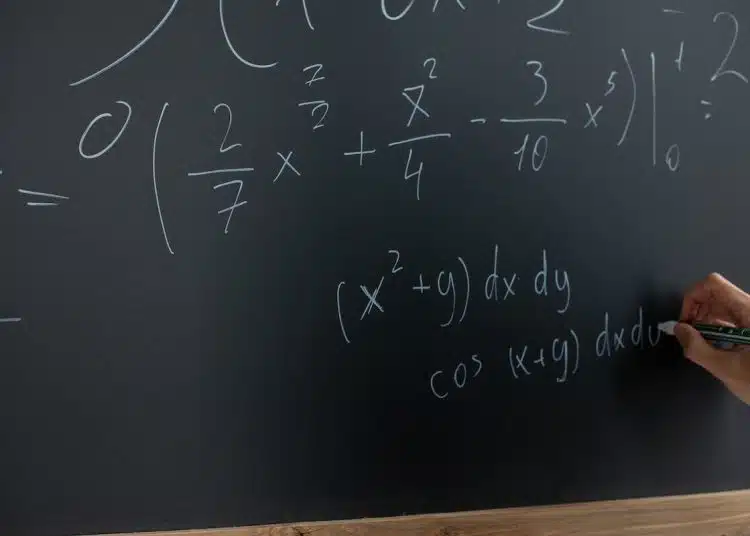 = 0 (2/7 x^(7/2) + x^2/4 - 3/10 x^5)|_0^1 =
(x^2+y) dx dy
cos (x+y) dxdy